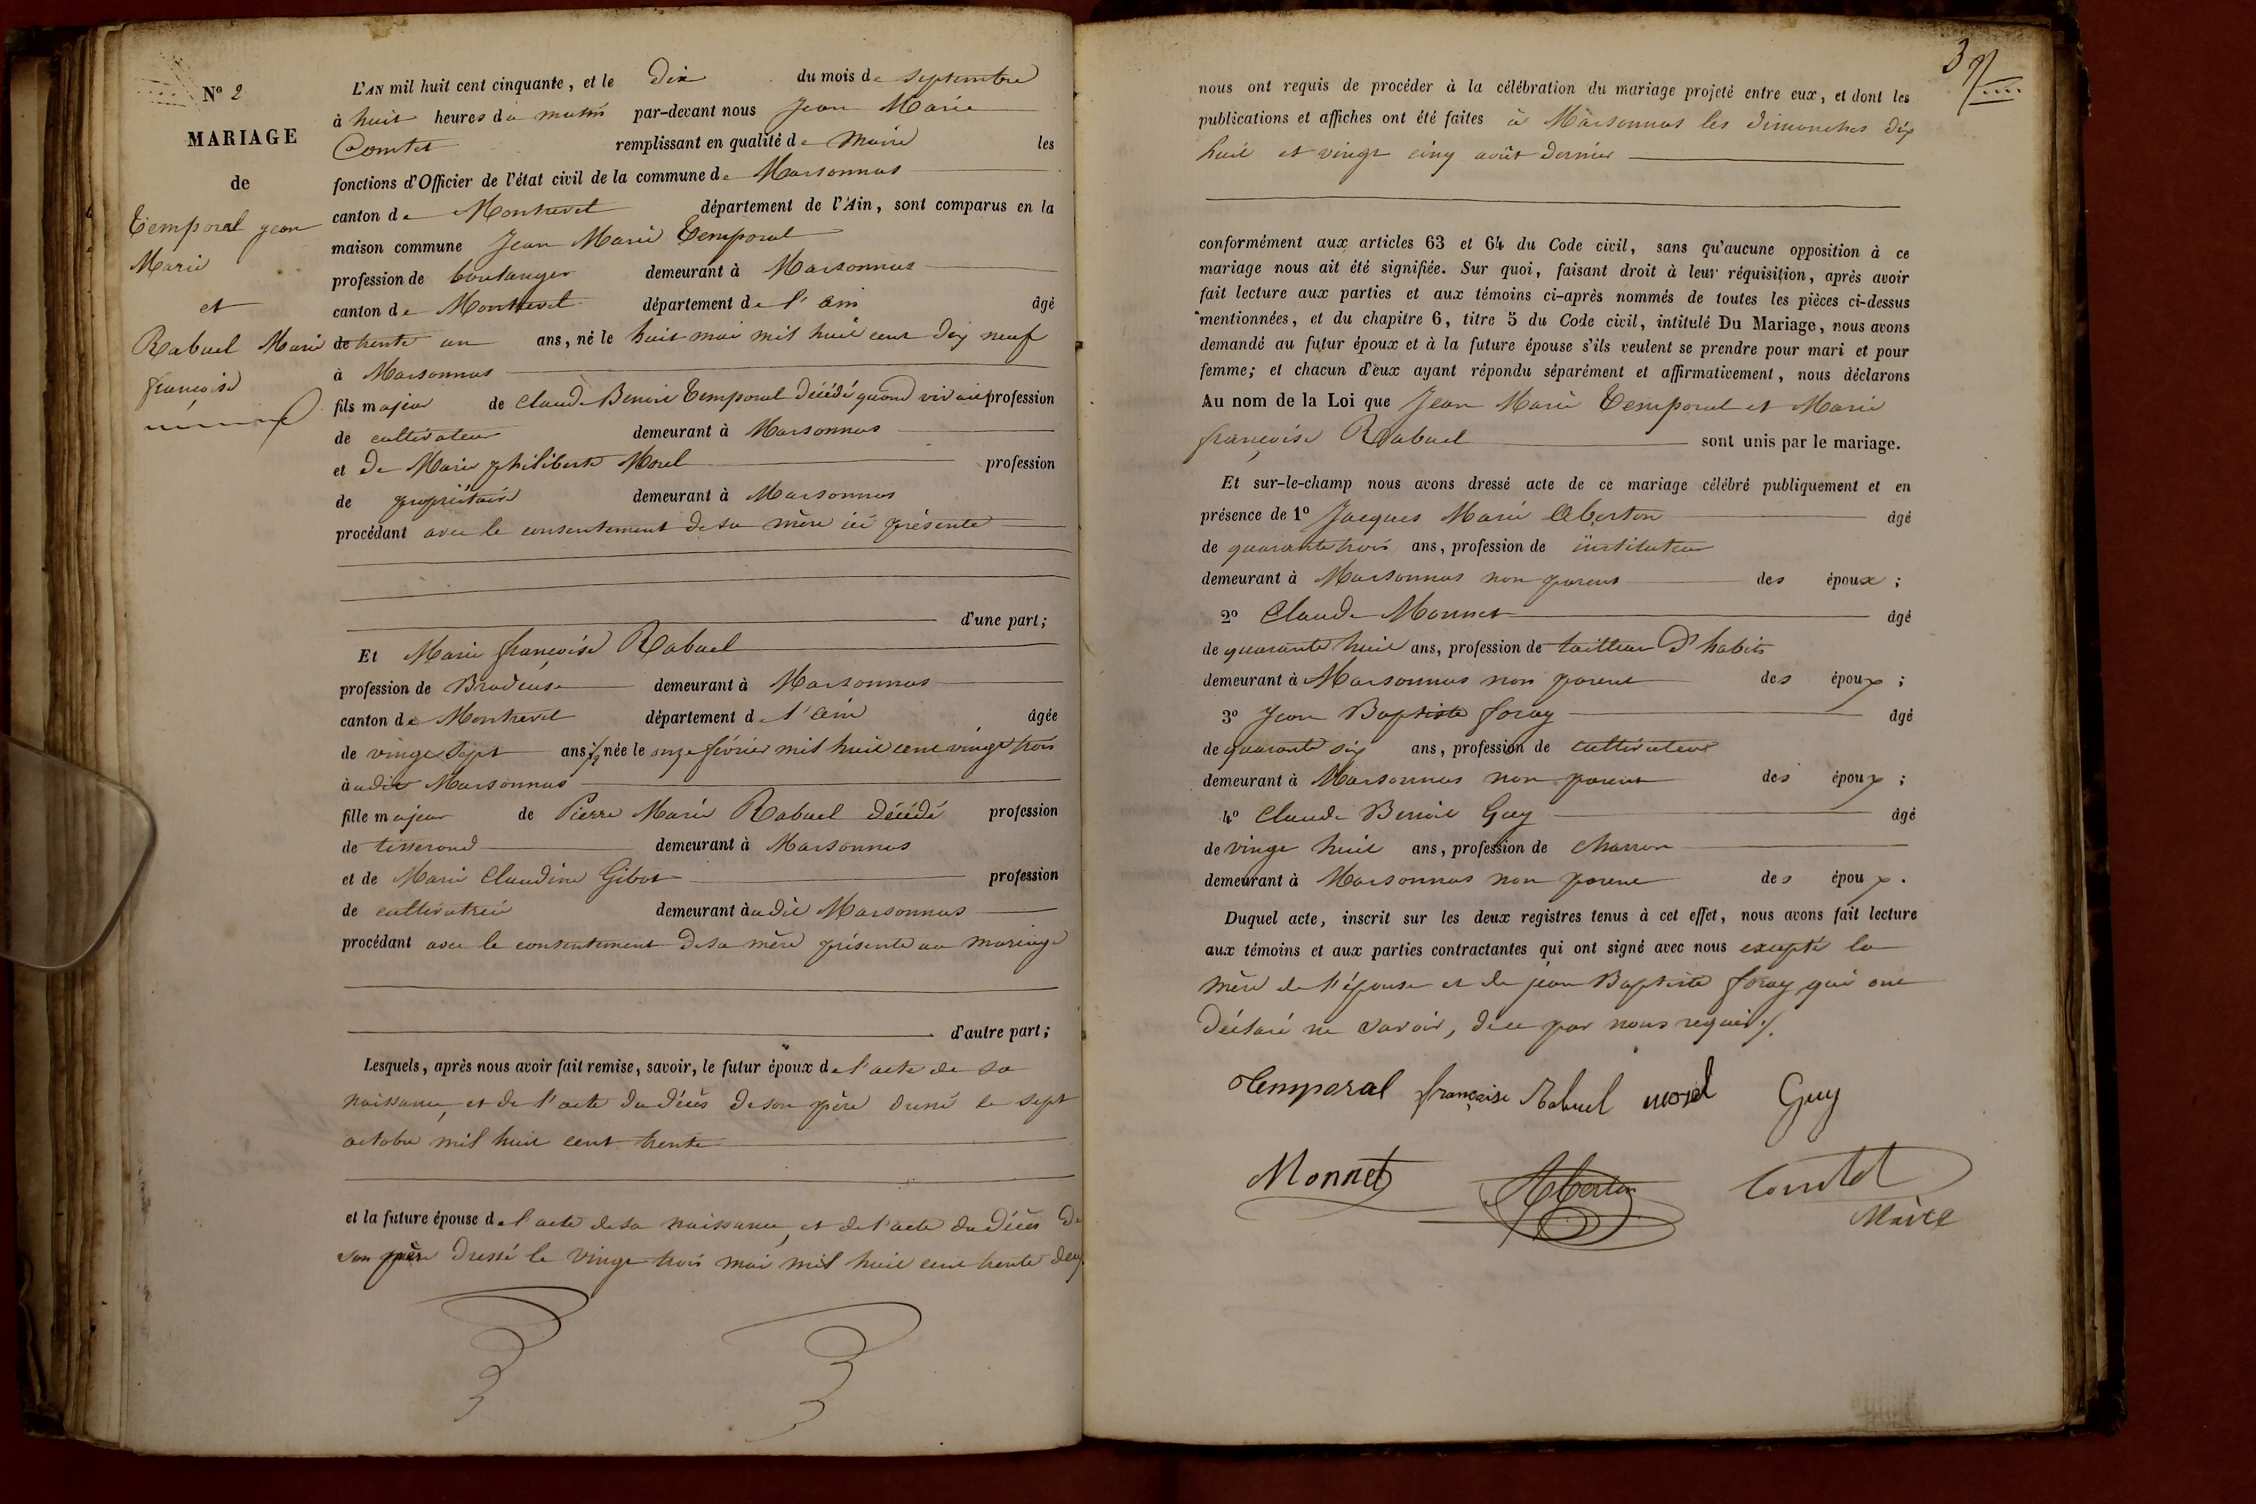 N° 2
MARIAGE
de
Temporal jean
Marie
et
Rabuel Marie
françoise
L'AN mil huit cent cinquante, et le dix du mois de septembre
à huit heures du matin par-devant nous Jean Marie
Comtet remplissant en qualité de Maire les
fonctions d'Officier de l'état civil de la commune de Marsonnas
canton de Montrevel département de l'Ain, sont comparus en la
maison commune Jean Marie Temporal
profession de boulanger demeurant à Marsonnas
canton de Montrevel département de l'ain âgé
de trente un ans, né le huit mai mil huit cent dix neuf
à Marsonnas
fils majeur de Claude Benoit Temporal décédé quand vivait profession
de cultivateur demeurant à Marsonnas
et de Marie philiberte Morel profession
de propriétaire demeurant à Marsonnas
procédant avec le consentement de sa mère ici présente
d'une part;
Et Marie françoise Rabuel
profession de Brodeuse demeurant à Marsonnas
canton de Montrevel département de l'ain âgée
de vingt sept ans 1/2 née le onze février mil huit cent vingt trois
à udit Marsonnas
fille majeur de Pierre Marie Rabuel décédé profession
de tisserand demeurant à Marsonnas
et de Marie Claudine Gibot profession
de cultivatrice demeurant àudit Marsonnas
procédant avec le consentement de sa mère présente au mariage
d'autre part;
Lesquels, après nous avoir fait remise, savoir, le futur époux de l'acte de sa
naissance, et de l'acte du décès de son père le sept
octobre mil huit cent trente
et la future épouse de l'acte de sa naissance, et de l'acte du décès de
son père dressé le vingt trois mai mil huit cent trente deux
3
nous ont requis de procéder à la célébration du mariage projeté entre eux, et dont les
publications et affiches ont été faites à Marsonnas les dimanches dix
huit et vingt cinq août dernier
conformément aux articles 63 et 64 du Code civil, sans qu'aucune opposition à ce
mariage nous ait été signifiée. Sur quoi, faisant droit à leur réquisition, après avoir
fait lecture aux parties et aux témoins ci-après nommés de toutes les pièces ci-dessus
mentionnées, et du chapitre 6, titre 5 du Code civil, intitulé Du Mariage, nous avons
demandé au futur époux et à la future épouse s'ils veulent se prendre pour mari et pour
femme; et chacun d'eux ayant répondu séparément et affirmativement, nous déclarons
Au nom de la Loi que Jean Marie Temporal et Marie
françoise Rabuel sont unis par le mariage.
Et sur-le-champ nous avons dressé acte de ce mariage célébré publiquement et en
présence de 1° Jacques Marie Alberton âgé
de quarante trois ans, profession de instituteur
demeurant à Marsonnas non parent des époux;
2° Claude Monnet âgé
de quarante huit ans, profession de tailleur d'habits
demeurant à Marsonnas non parent des époux;
3° Jean Baptiste foray âgé
de quarante six ans, profession de cultivateur
demeurant à Marsonnas non parent des époux;
4° Claude Benoit Guy âgé
de vingt huit ans, profession de charron
demeurant à Marsonnas non parent des époux.
Duquel acte, inscrit sur les deux registres tenus à cet effet, nous avons fait lecture
aux témoins et aux parties contractantes qui ont signé avec nous excepté la
mère de l'épouse et de jean Baptiste foray qui ont
déclaré ne savoir, de ce par nous requis
Temporal françoise Rabuel morel Guy
Monnet Alberton Comtet
Maire